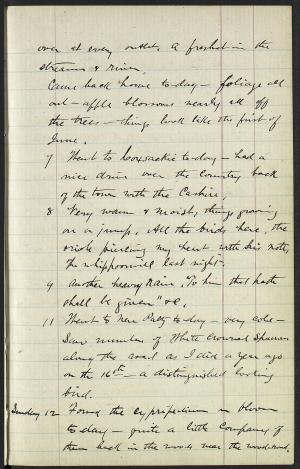 over at every outlet. A freshet in the
streams & river.
Came back home to-day – foliage all
out – apple blossoms nearly all off
the trees – things look like the first of
June.
7 Went to Coxsackie to-day – had a
nice drive over the country back
of the town with the Cashier.
8 Very warm & moist, things growing
on a jump. All the birds here, the
oriole piercing my heart with his note,
the whippoorwill last night –
9 Another heavy rain. "To him that hath
shall be given" &c.
11 Went to New Paltz to-day – very cold –
Saw number of White Crowned Sparrows
along the road as I did a year ago
on the 16th – a distinguished looking
bird.
Sunday 12 Found the cypripedium in bloom
to-day – quite a little company of
them back in the woods near the